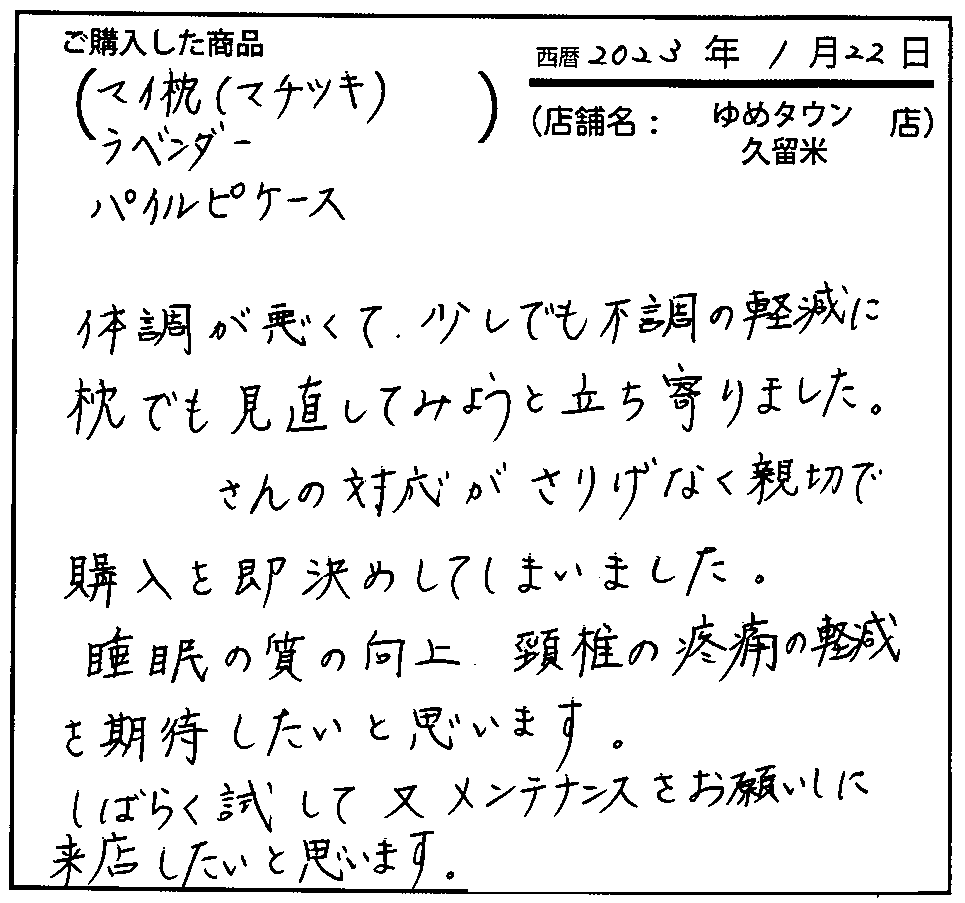 ご購入した商品
西暦2023年1月22日
(マイ枕(マチツキ)
ラベンダー)
(店舗名： ゆめタウン 店)
久留米
パイルピケース
体調が悪くて、少しでも不調の軽減に
枕でも見直してみようと立ち寄りました。
さんの対応がさりげなく親切で
購入を即決めしてしまいました。
睡眠の質の向上、頸椎の疼痛の軽減
を期待したいと思います。
しばらく試して又メンテナンスをお願いしに
来店したいと思います。